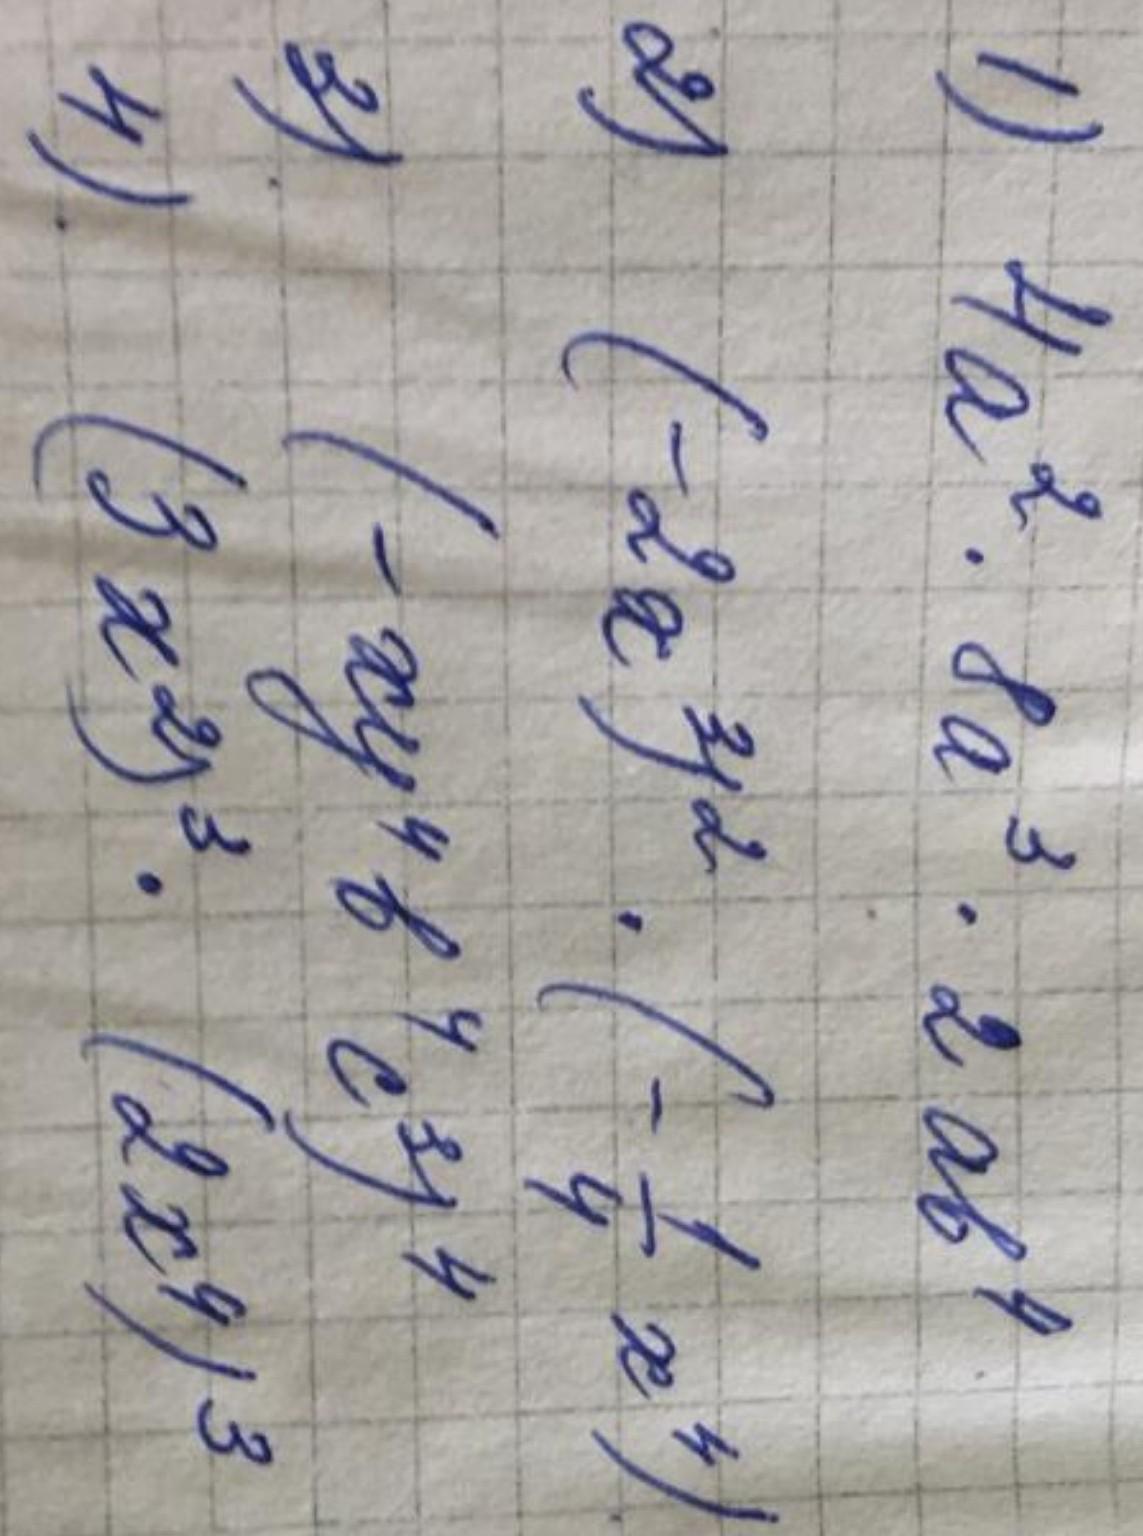 1) 4a² · 8a³ · 2ab⁴
2) (-2x³)² · (-1/4 x⁴)
3) (-xy⁴b⁴c³)⁴
4) (3x²)³ · (2x⁴)³